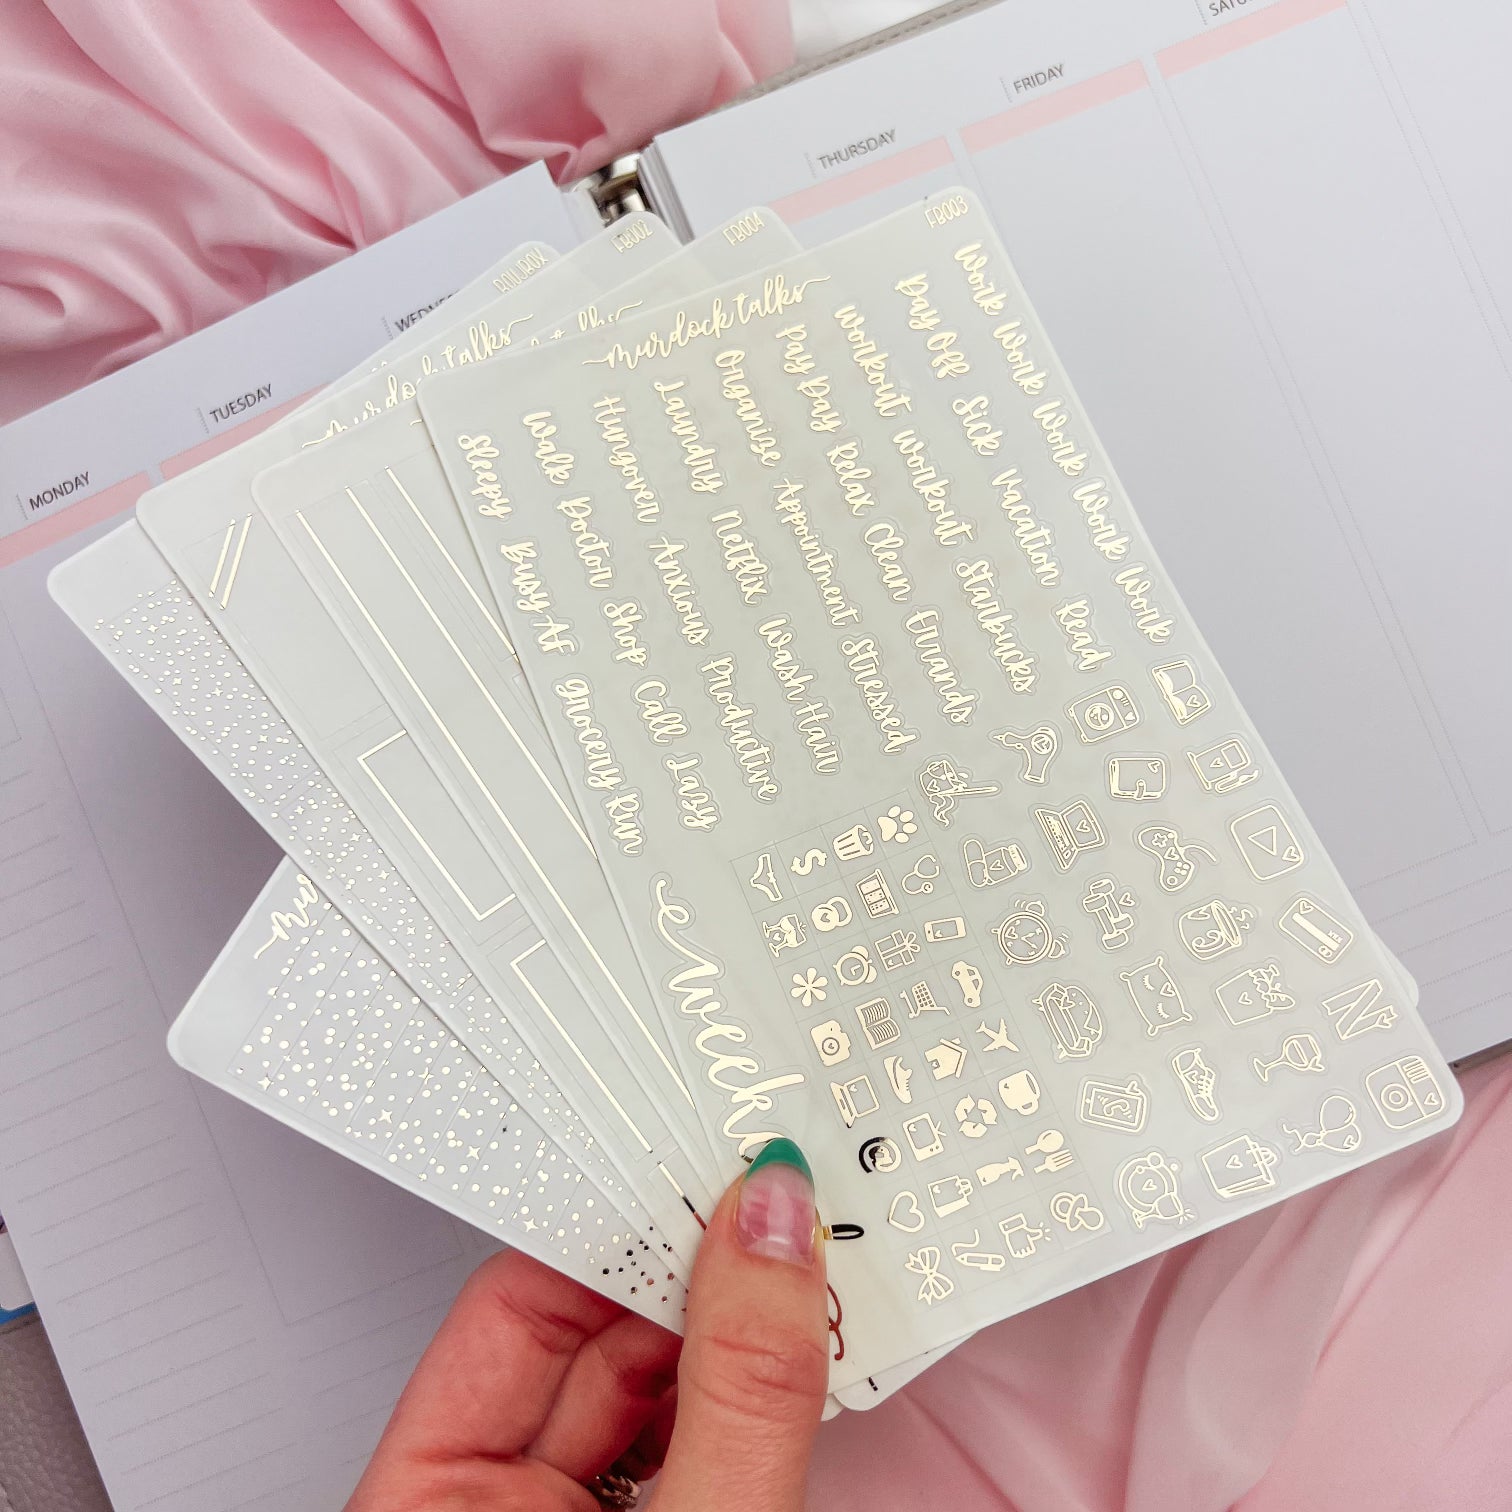 MONDAY
TUESDAY
THURSDAY
FRIDAY
FB002
FB004
FB003
murdock talks
murdock talks
Work Work Work Work Work
Day Off Sick Vacation Read
Workout Workout Starbucks
Pay Day Relax Clean Errands
Organize Appointment Stressed
Laundry Netflix Wash Hair
Hungover Anxious Productive
Walk Doctor Shop Call Lazy
Sleepy Busy AF Grocery Run
N